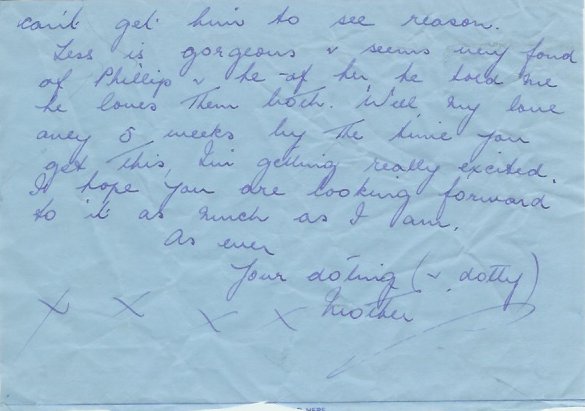 can't get him to see reason.
Less is gorgeous & seems very fond
of Phillip & he of her, he told me
he loves them both. Well my love
only 5 weeks by the time you
get this, I'm getting really excited.
I hope you are looking forward
to it as much as I am.
As ever
Your doting (& dotty)
X X X X Mother
HERE